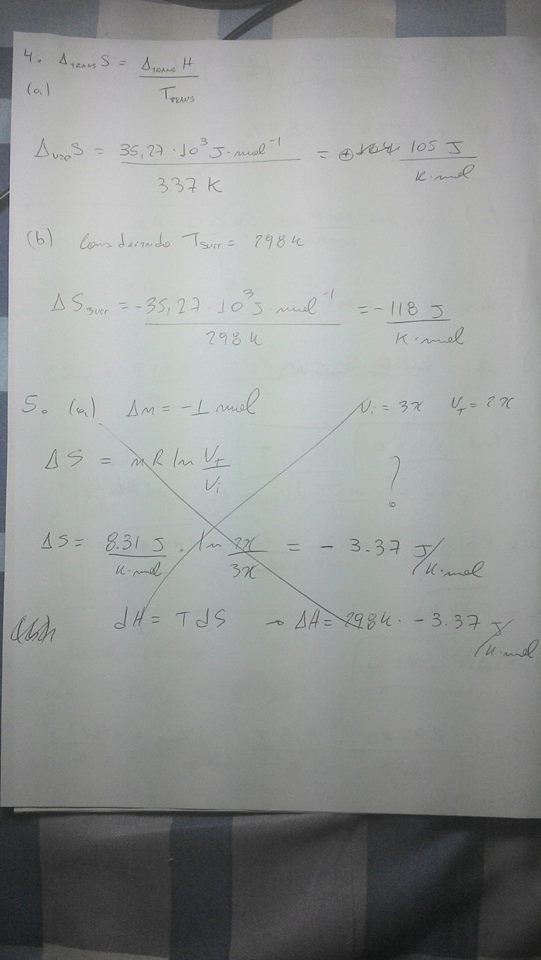 4. Δ_TRANS S = Δ_TRANS H / T_TRANS
(a)
Δ_VAP S = 35,27 · 10³ J · mol⁻¹ / 337 K = ⊕ 105 J / K·mol
(b) Considerando T_surr = 298 K
ΔS_surr = -35,27 · 10³ J · mol⁻¹ / 298 K = -118 J / K·mol
5. (a) Δn = -1 mol V_i = 3x V_f = 2x
ΔS = nR ln V_f / V_i ?
ΔS = 8.31 J / K·mol · ln 2x / 3x = - 3.37 J/K·mol
dH = T dS → ΔH = 298K · - 3.37 J/K·mol